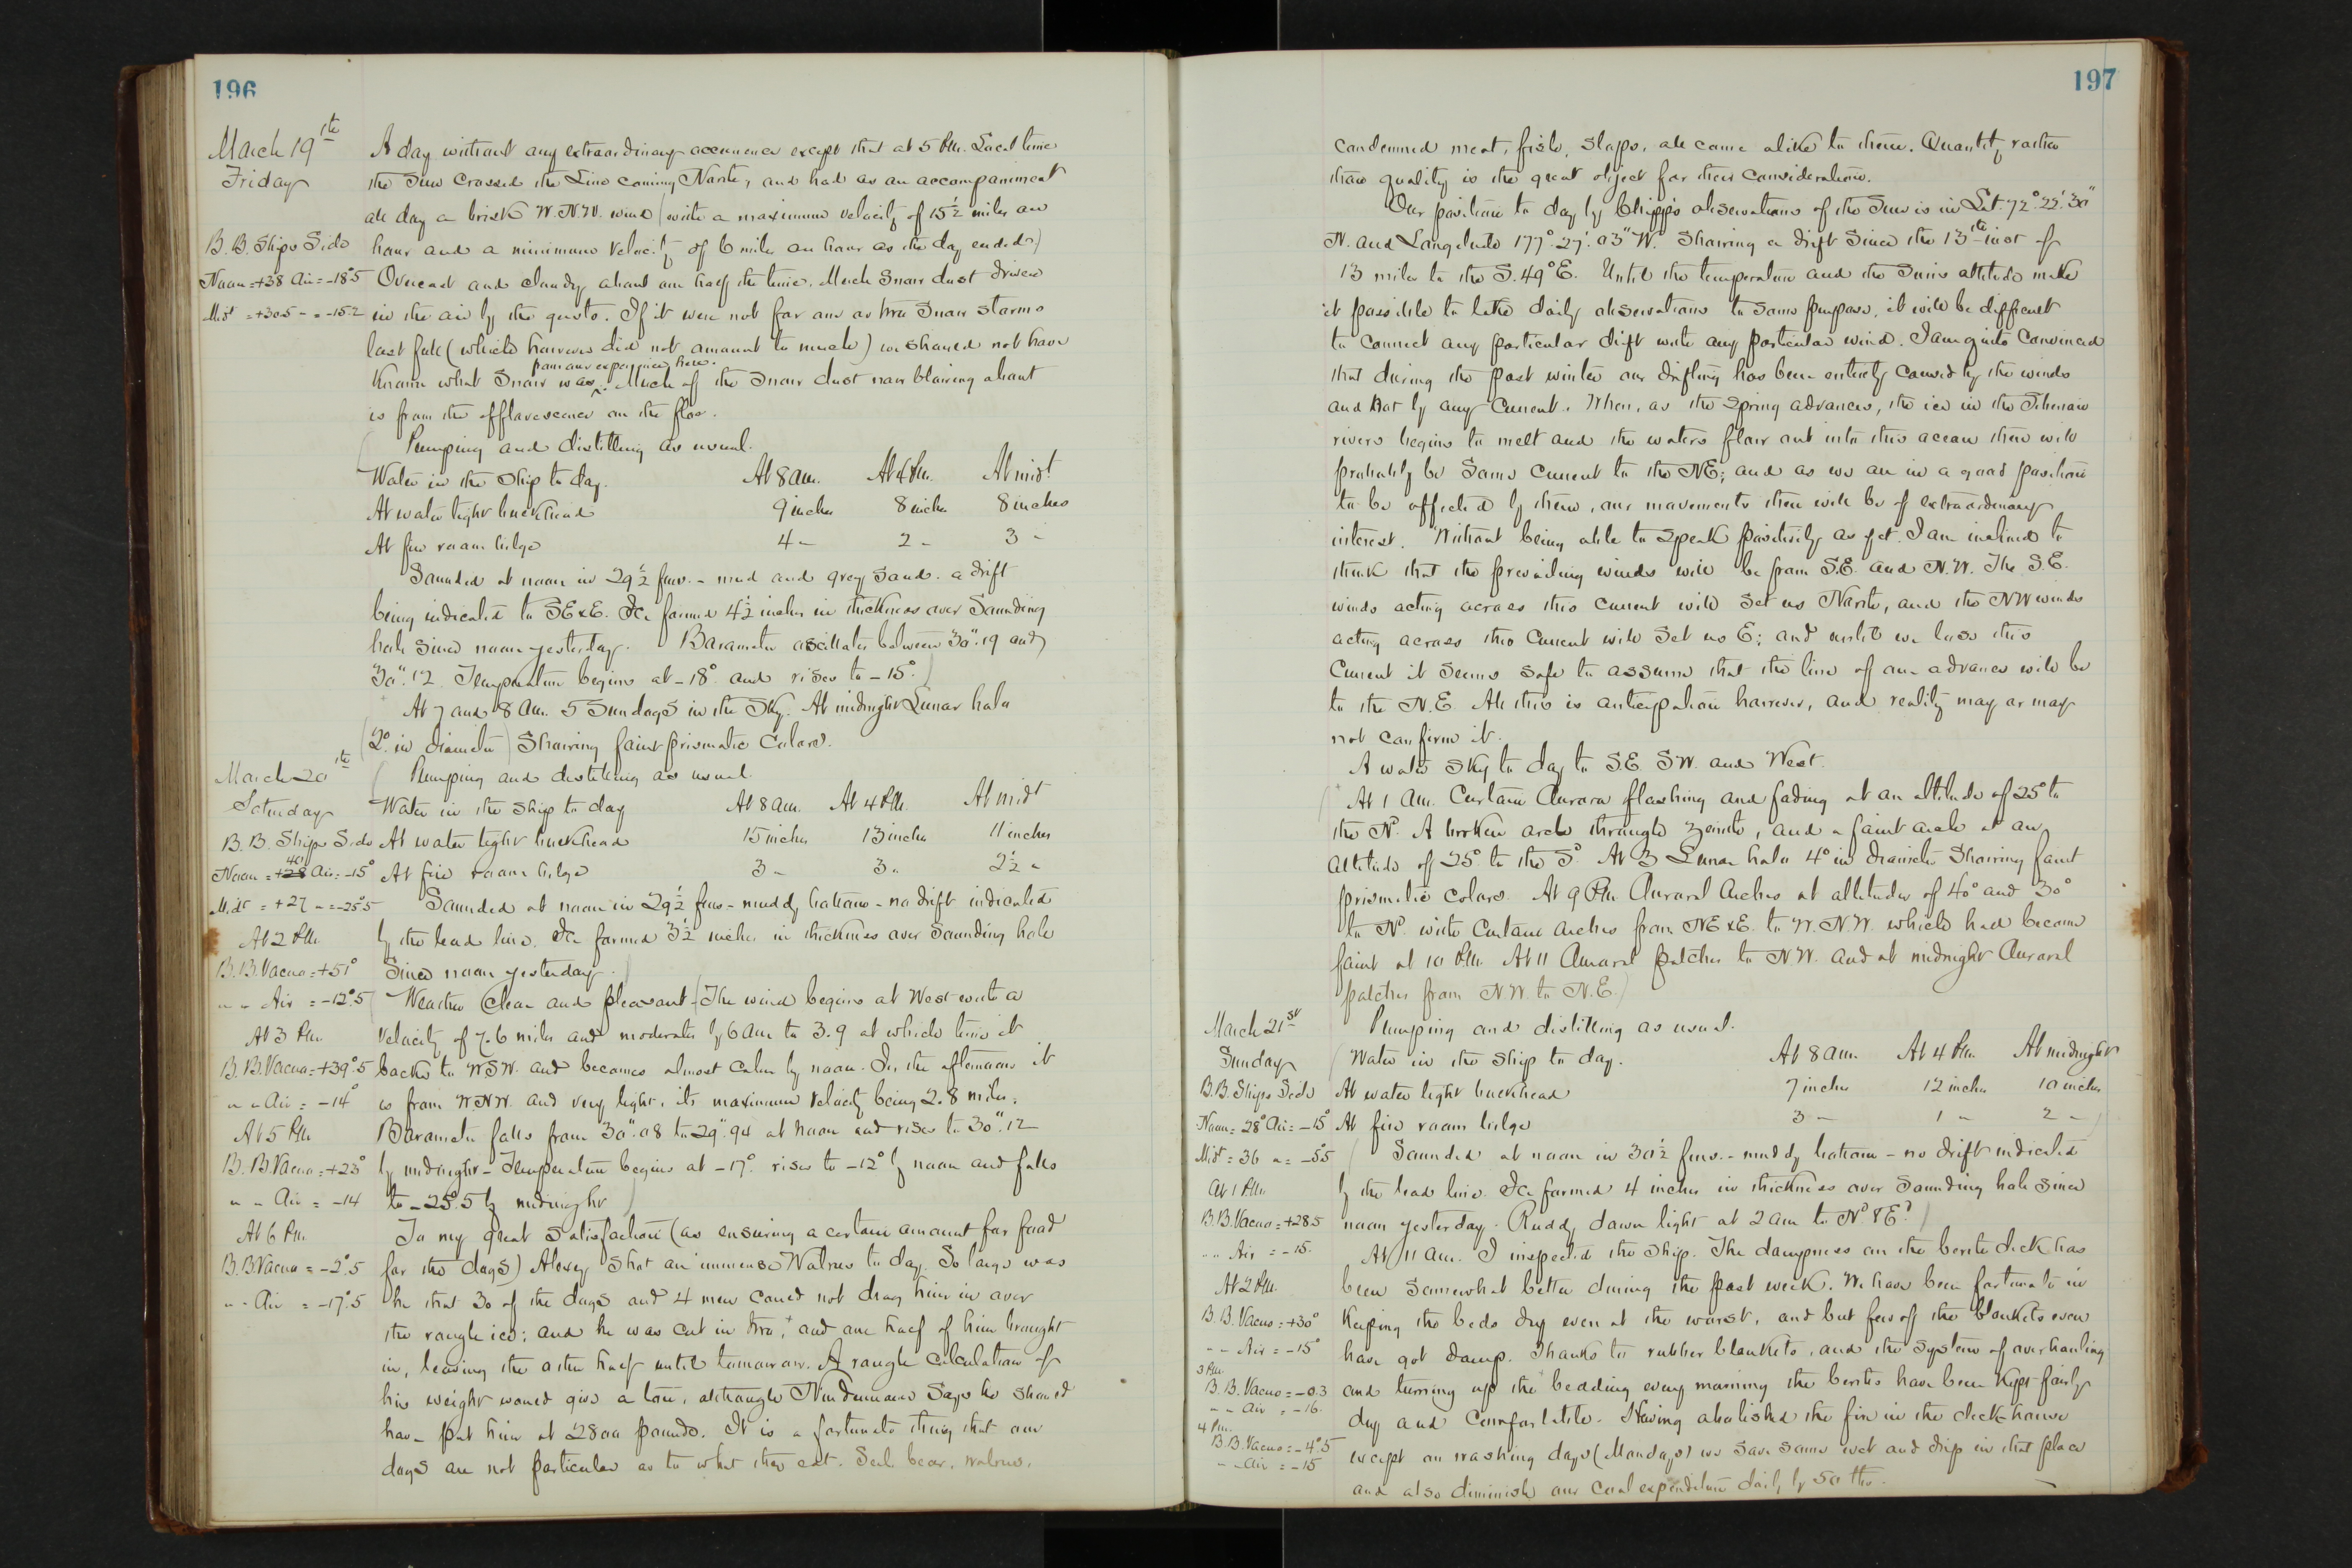 196
March 19th
Friday
A day without any extraordinary occurrence except that at 5 P.M. Local time
the Sun Crossed the Line coming North, and had as an accompaniment
all day a brisk W.N.W. wind (with a maximum velocity of 15½ miles an
B.B. Ships Side
hour and a minimum velocity of 6 miles an hour as the day ended.)
Noon = +38 Air = -18°.5
Overcast and cloudy about one half the time. Much Snow dust driven
Midt = +30.5 " = -15.2
in the air by the gusts. If it were not for one or two Snow storms
last fall (which however did not amount to much) we should not have
from our experience here.
known what Snow was ^. Much of the Snow dust now blowing about
is from the efflorescence on the floe.
Pumping and distilling as usual.
Water in the Ship to day. At 8 am. At 4 P.M. At midt
At water tight bulkhead 9 inches 8 inches 8 inches
At fire room bilge 4 " 2 " 3 "
Sounded at noon in 29½ fms. - mud and grey Sand. a drift
being indicated to SExE. Ice formed 4½ inches in thickness over Sounding
hole since noon yesterday. Barometer oscillates between 30".19 and
30".12. Temperature begins at -18° and rises to -15°.)
At 7 and 8 Am. 5 Sun dogS in the Sky. At midnight Lunar halo
(2° in diameter) Showing faint prismatic Colors.
March 20th
Saturday
(Pumping and distilling as usual.
Water in the Ship to day At 8 am. At 4 P.M. At midt
B.B. Ships Side
At water tight bulkhead 15 inches 13 inches 11 inches
Noon = +28 40 Air = -15°
At fire room bilge 3 " 3 " 2½ "
Midt = +27 " = -25°.5
Sounded at noon in 29½ fms - muddy bottom - no drift indicated
At 2 P.M.
by the lead line. Ice formed 3½ inches in thickness over Sounding hole
B.B. Vacuo = +51°
Since noon yesterday.)
" " Air = -12°.5
Weather Clear and pleasant (The wind begins at West with a
At 3 P.M.
velocity of 7.6 miles and moderates by 6 am to 3.9 at which time it
B.B. Vacuo = +39°.5
backs to WSW. and becomes almost calm by noon. In the afternoon it
" " Air = -14°
is from W.N.W. and very light, its maximum velocity being 2.8 miles.
At 5 P.M.
Barometer falls from 30".08 to 29".94 at noon and rises to 30".12
B.B. Vacuo = +23°
by midnight - Temperature begins at -17° rises to -12° by noon and falls
" " Air = -14
to -25°.5 by midnight)
At 6 P.M.
To my great Satisfaction (as ensuring a certain amount for food
B.B. Vacuo = -2°.5
for the dogS) Alexey Shot an immense Walrus to day. So large was
" " Air = -17°.5
he that 30 of the dogs and 4 men could not drag him in over
the rough ice; and he was cut in two, and one half of him brought
in, leaving the other half until tomorrow. A rough calculation of
his weight would give a ton, although Nindemann Says he should
have put him at 2800 pounds. It is a fortunate thing that our
dogS are not particular as to what they eat. Seal, bear, walrus,
197
condemned meat, fish, Slops, all come alike to them. Quantity rather
than quality is the great object for their consideration.
Our position to day by Chipp's observations of the Sun is in Lat. 72°.22'.30"
N. and Longitude 177°.27'.03" W. Showing a drift Since the 13th inst of
13 miles to the S.49°E. Until the temperature and the Suns altitude make
it possible to take daily observations to some purpose, it will be difficult
to connect any particular drift with any particular wind. I am quite convinced
that during the past winter our drifting has been entirely caused by the winds
and Not by any Current. When, as the Spring advances, the ice in the Siberian
rivers begins to melt and the waters flow out into this ocean there will
probably be Some Current to the NE; and as we are in a good position
to be affected by them, our movements then will be of extraordinary
interest. Without being able to Speak positively as yet, I am inclined to
think that the prevailing winds will be from S.E. and N.W. The S.E.
winds acting across this Current will Set us North, and the NW winds
acting across this Current will Set us E; and until we lose this
Current it Seems Safe to assume that the line of our advance will be
to the N.E. All this is anticipation however, and reality may or may
not confirm it.
A water Sky to day to S.E. SW. and West.
At 1 Am. Curtain Aurora flashing and fading at an altitude of 25° to
the N°. A broken arch through zenith, and a faint arch at an
altitude of 25° to the S°. At 3 Lunar halo 4° in diameter Showing faint
prismatic colors. At 9 P.M. Auroral Arches at altitudes of 40° and 30°
to N°. with Curtain Arches from NExE. to W.N.W. which had become
faint at 10 P.M. At 11 Auroral patches to NW. and at midnight Auroral
patches from N.W. to N.E.)
March 21st
Pumping and distilling as usual.
Sunday
(Water in the Ship to day. At 8 am. At 4 P.M. At midnight
B.B. Ships Side
At water tight bulkhead 7 inches 12 inches 10 inches
Noon = 28° Air = -15°
At fire room bilge 3 " 1 " 2 ")
Midt = 36 " = -5.5
(Sounded at noon in 30½ fms. - muddy bottom - no drift indicated
At 1 P.M.
by the lead line. Ice formed 4 inches in thickness over Sounding hole since
B.B. Vacuo = +28.5
noon yesterday. Ruddy dawn light at 2 am to N° & E°.)
" " Air = -15.
At 11 am. I inspected the Ship. The dampness on the berth deck has
At 2 P.M.
been Somewhat better during the past week. We have been fortunate in
B.B. Vacuo = +30°
Keeping the beds dry even at the worst, and but few of the blankets even
" " Air = -15°
have got damp. Thanks to rubber blankets, and the system of overhauling
3 P.M.
B.B. Vacuo = -0.3
and turning up the bedding every morning the berths have been Kept fairly
" " Air = -16.
dry and Comfortable. Having abolished the fire in the deck house
4 P.M.
B.B. Vacuo = -4°.5
except on washing days (Mondays) we Save some wet and drip in that place
" " Air = -15
and also diminish our Coal expenditure daily by 50 lbs.